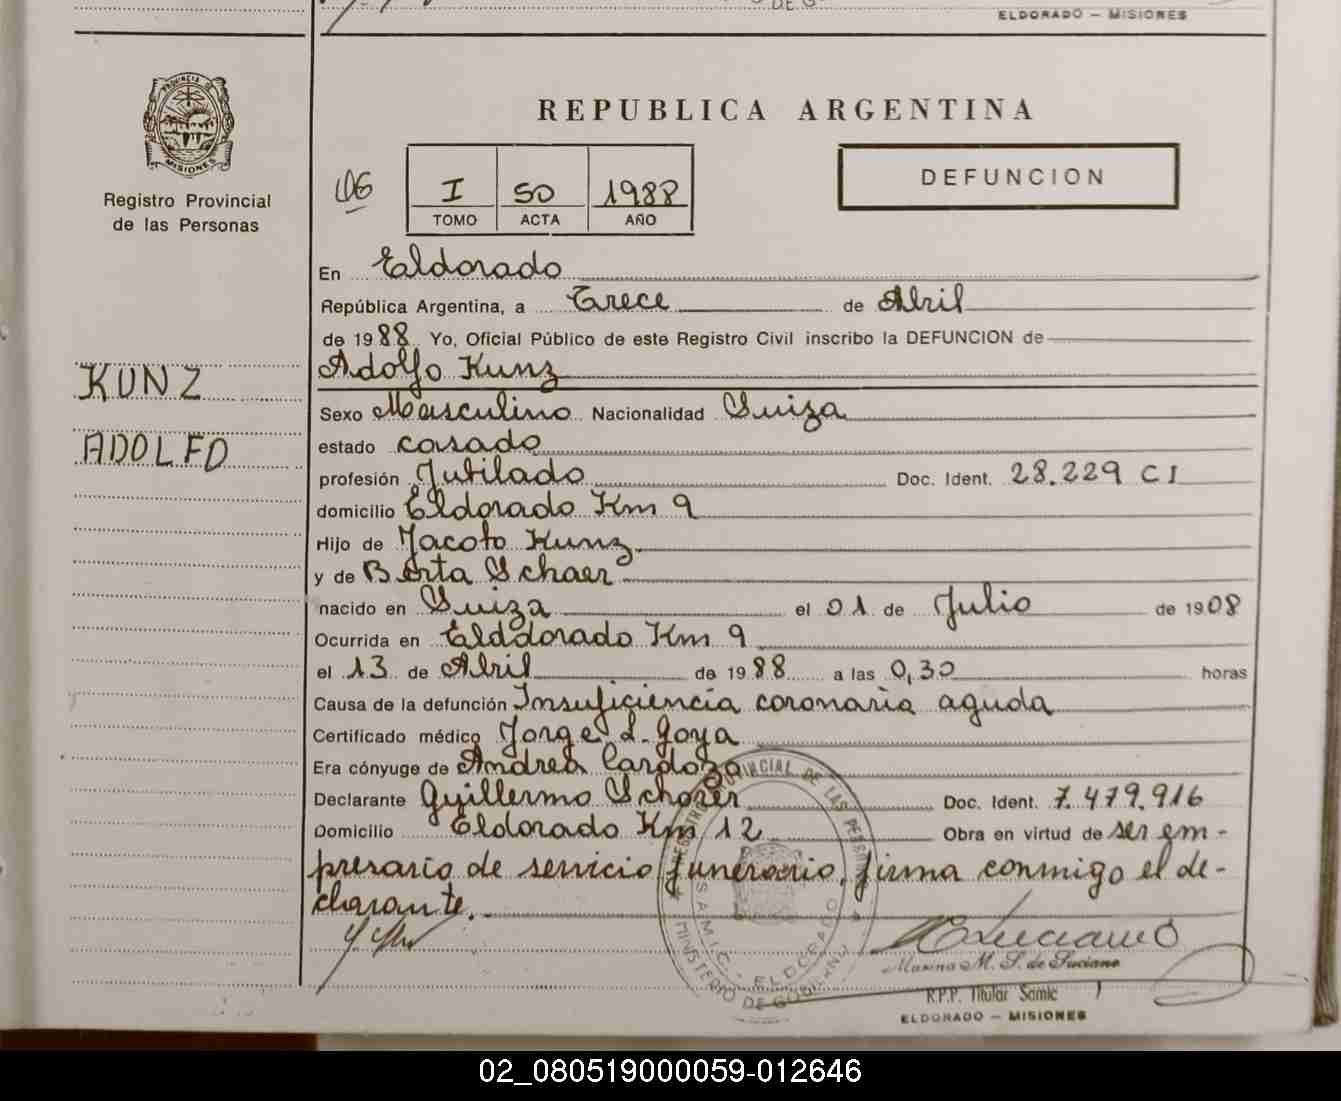 ELDORADO — MISIONES
PROVINCIA DE
MISIONES
Registro Provincial
de las Personas
KUNZ
ADOLFO
REPUBLICA ARGENTINA
I 50 1988
TOMO ACTA AÑO
DEFUNCION
En Eldorado
República Argentina, a Trece de Abril
de 1988 Yo, Oficial Público de este Registro Civil inscribo la DEFUNCION de
Adolfo Kunz
Sexo Masculino Nacionalidad Suiza
estado casado
profesión Jubilado Doc. Ident. 28.229 CI
domicilio Eldorado Km 9
Hijo de Jacobo Kunz
y de Berta Schaer
nacido en Suiza el 01 de Julio de 1908
Ocurrida en Elddorado Km 9
el 13 de Abril de 1988 a las 0,30 horas
Causa de la defunción Insuficiencia coronaria aguda
Certificado médico Jorge L. Goya
Era cónyuge de Andrea Cardozo
Declarante Guillermo Schorer Doc. Ident. 7.479.916
Domicilio Eldorado Km 12 Obra en virtud de ser em-
presario de servicio funerario, firma conmigo el de-
clarante.
REGISTRO PROVINCIAL DE LAS PERSONAS
S.A.M.I.C. - ELDORADO
MINISTERIO DE GOBIERNO
Luciano
Marina M. S. de Luciano
R.P.P. Titular Samic
ELDORADO — MISIONES
02_080519000059-012646